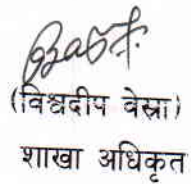 (विश्वदीप वेस्रा)
शाखा अधिकृत